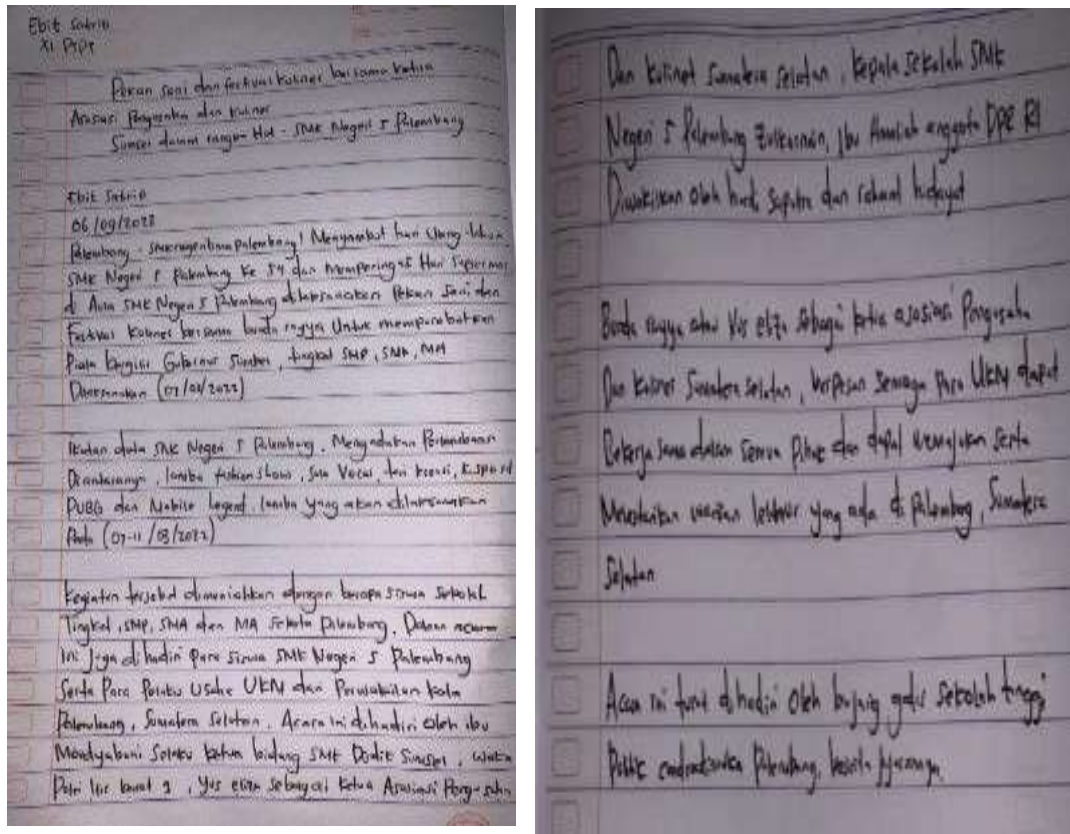 Ebit Satrio
XI PSPT
Pekan seni dan festival kuliner bersama ketua
Asosiasi Pengusaha dan kuliner
Sumsel dalam rangka Hut - SMK Negeri 5 Palembang
Ebit Satrio
06/09/2022
Palembang - smknegerilimapalembang! Menyambut hari Ulang
SMK Negeri 5 Palembang Ke 54 dan Memperingati Hari
di Aula SMK Negeri 5 Palembang dilaksanakan Pekan Seni dan
Festival Kuliner bersama bunda rayya Untuk memperebutkan
Piala bergilir Gubernur Sumsel, tingkat SMP, SMA, MA
Dilaksanakan (07/08/2022)
Ikatan duta SMK Negeri 5 Palembang. Mengadakan Perlombaan
Diantaranya, lomba fashion show, Solo Vocal, tari kreasi,
PUBG dan Mobile Legend, lomba yang akan dilaksanakan
Pada (07-11/08/2022)
Kegiatan tersebut dimeriahkan dengan berapa siswa Sekolah
Tingkat, SMP, SMA dan MA Sekota Palembang. Dalam acara
Ini juga dihadiri Para Siswa SMK Negeri 5 Palembang
Serta Para Pelaku Usaha UKM dan Perwakilan
Palembang, Sumatera Selatan. Acara ini dihadiri Oleh ibu
Mondyaboni Selaku Ketua bidang SMK Disdik Sumsel,
Yus eliza sebagai Ketua Asosiasi Pengusaha
Dan Kuliner Sumatera Selatan, kepala Sekolah SMK
Negeri 5 Palembang Zulkarnain, Ibu anggota DPR RI
Diwakilkan Oleh hadi saputra dan rahmat hidayat
Bunda rayya atau Yus eliza Sebagai ketua asosiasi Pengusaha
Dan Kuliner Sumatera selatan, berpesan Semoga Para UKM dapat
Bekerja sama dalam Semua Pihak dan dapat memajukan Serta
Melestarikan warisan leluhur yang ada di Palembang, Sumatera
Selatan
Acara ini turut dihadiri Oleh bujang gadis Sekolah tinggi
Palembang, beserta